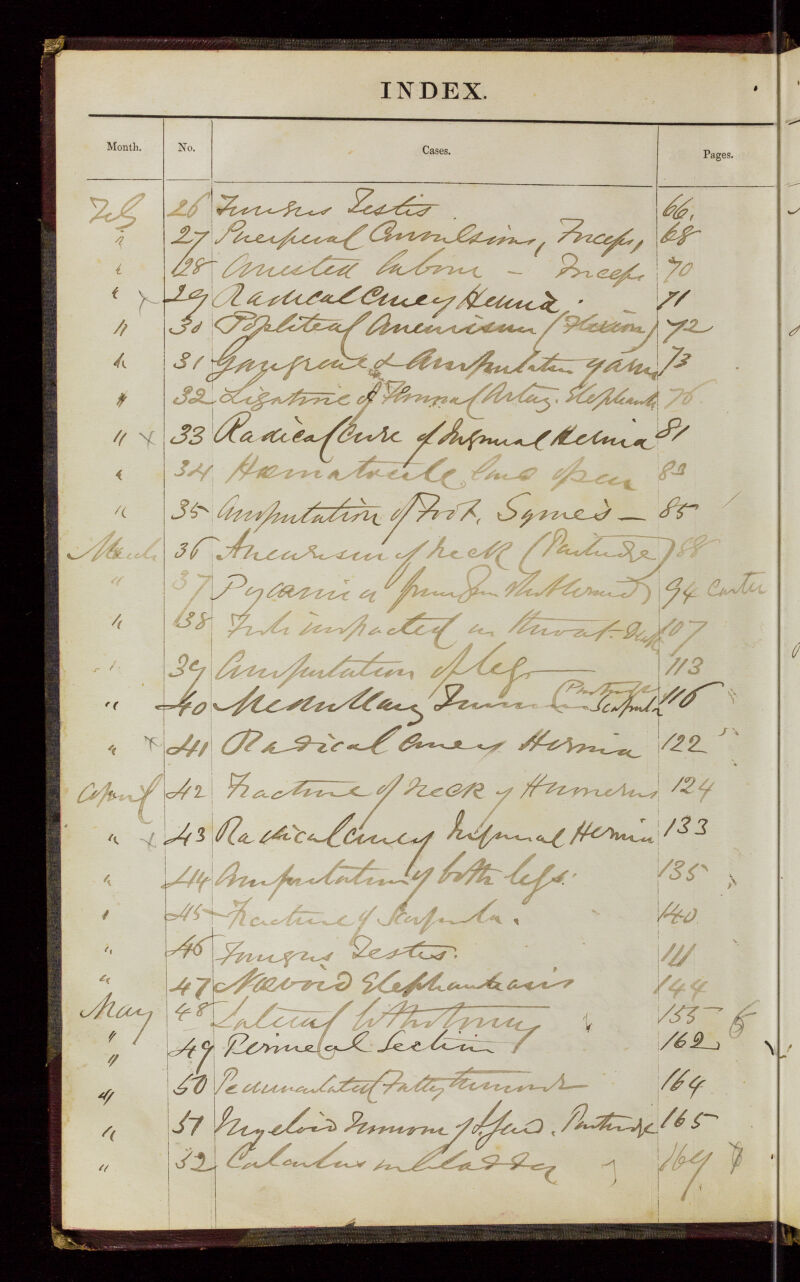 INDEX.
Month. No. Cases. Pages.
Feb 26 Fungus Testis 66.
" 27 Puerperal Convulsions, Forceps, 68
" 28 Arrested labour - Forceps 70
" x 29 Radical Cure of Hernia. 71
" 30 Popliteal Aneurism (Flexion) 72
" 31 Gangrene & Amputation of arm 73
" 32 Ligature of Femoral Artery. Elephant 76.
" x 33 Radical Cure of Inguinal Hernia 81
" 34 Hæmatocele laid open 83
" 35 Amputation of Foot, Syme's — 85
March 36 Aneurism of Neck (Partridge) 88
" 37 Pyæmia from Gun Shot Wound 94 Carter
" 38 impacted in throat. Death 107
" 39 Amputation of leg — 113
" 40 Medullary Tumour (Partridge) Scapula 116
" x 41 Radical Cure of Hernia 122
April 42 Fracture of Neck of Humerus 124
" x 43 Radical Cure of Inguinal Hernia 133
" 44 Amputation of both legs. 135
" 45 Fracture of Scapula. 140
" 46 Fungus Testis. 141
" 47 Nævoid Elephantiasis 144
May 48 Lateral Lithotomy 155 6
" 49 Perineal Section 162
" 50 Pedunculated Fatty tumour 164
" 51 Myeloid Tumour of . Partridge 165
" 52 Calculus in bladder 169